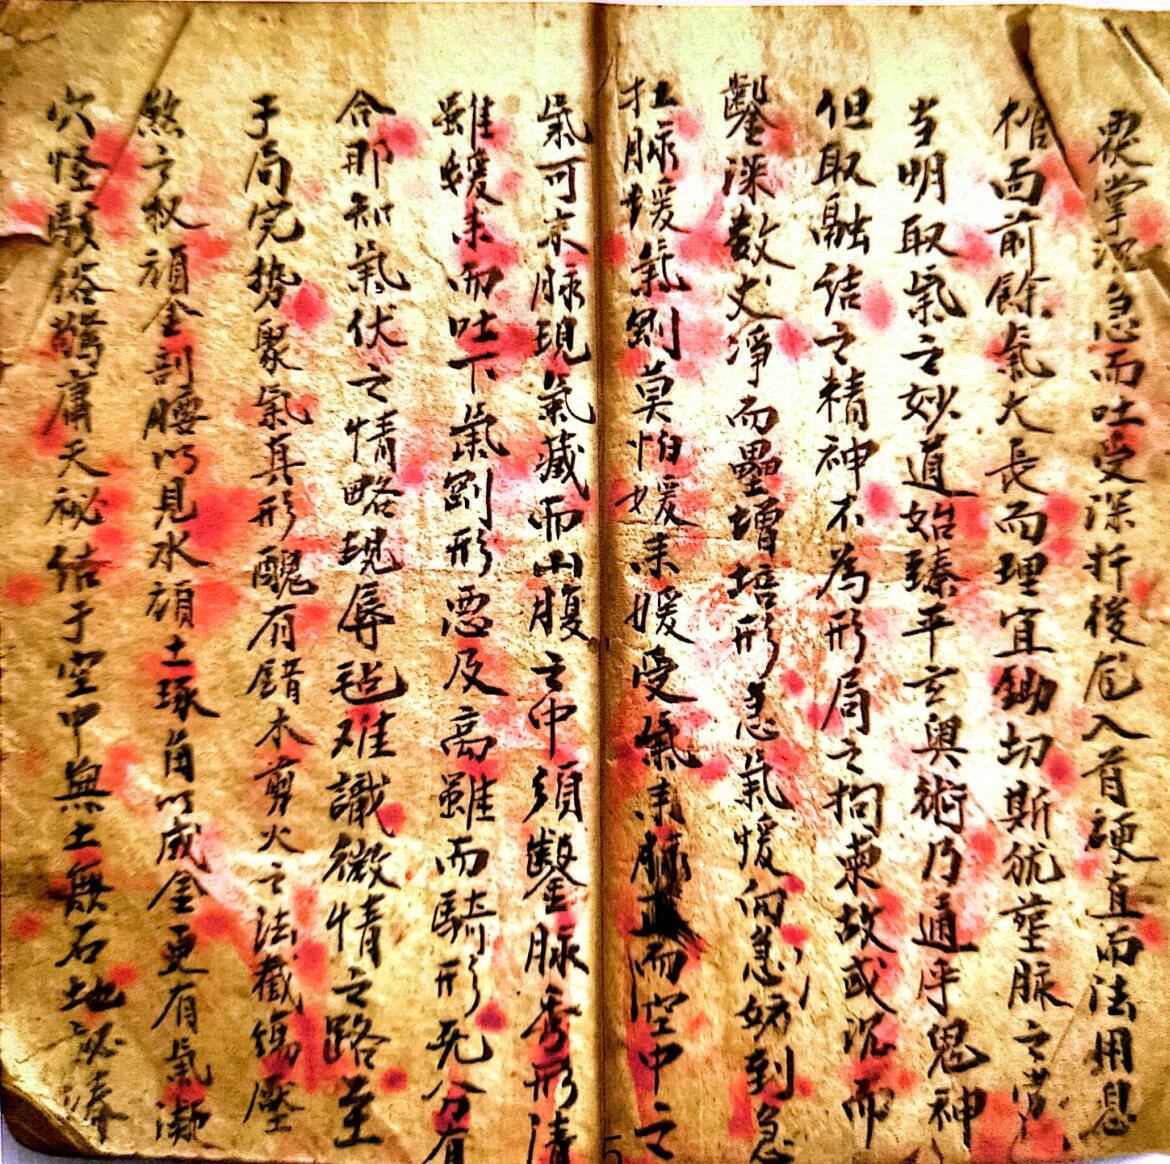 覆掌沉急而吐受深折後尾入首硬直而法用思
棺面前餘氣大長而理宜鋤切斯犹壅脉之
当明取氣之妙道始臻乎玄奥術乃通乎鬼神
但取融结之精神不為形局之拘束故或沉而
鑿深数丈淨而壘增培形急氣慢向急妨到急
扛脉缓氣剛莫怕媛耒媛受氣耒脉而空中之
氣可耒脉現氣藏而山腹之中須鑿脉秀形清
雖媛耒而吐下氣剛形恶及高雖而騎形死分有
合那知氣伏之情略現辱毡难識微情之路至
于局完势聚氣真形醜有錯木剪火之法截傷壓
煞之权顽金剖腰以見水頑土琢角以成金更有氣凝
穴怪駭俗驚庸天祕结于空中無土無石地